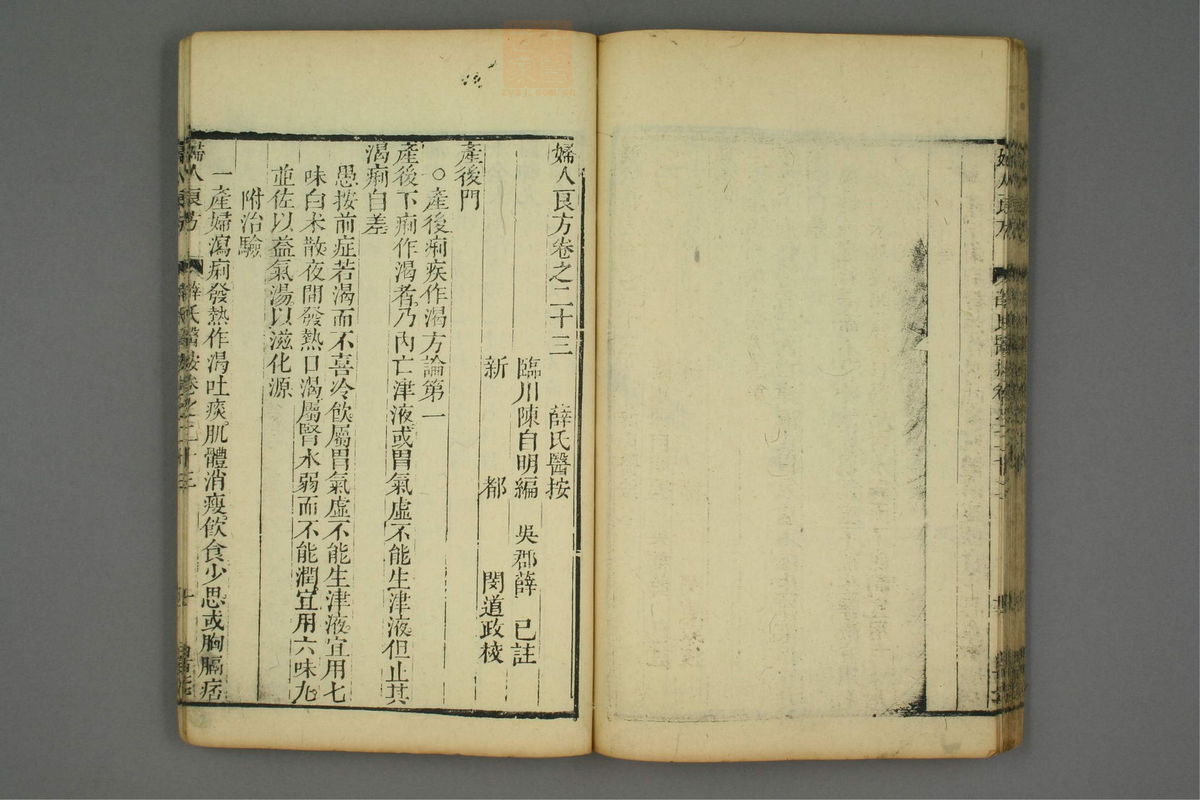 婦人良方 薛氏醫按卷之二十
婦人良方卷之二十三 薛氏醫按
臨川陳自明編 吳郡薛 已註
新 都 閔道政校
產後門
○產後痢疾作渴方論第一
產後下痢作渴者乃內亡津液或胃氣虛不能生津液但止其
渴痢自差
愚按前症若渴而不喜冷飲屬胃氣虛不能生津液宜用七
味白朮散夜間發熱口渴屬腎水弱而不能潤宜用六味丸
並佐以益氣湯以滋化源
附治驗
一產婦瀉痢發熱作渴吐痰肌體消瘦飲食少思或胸膈痞
婦人良方 薛氏醫按卷之二十三 一